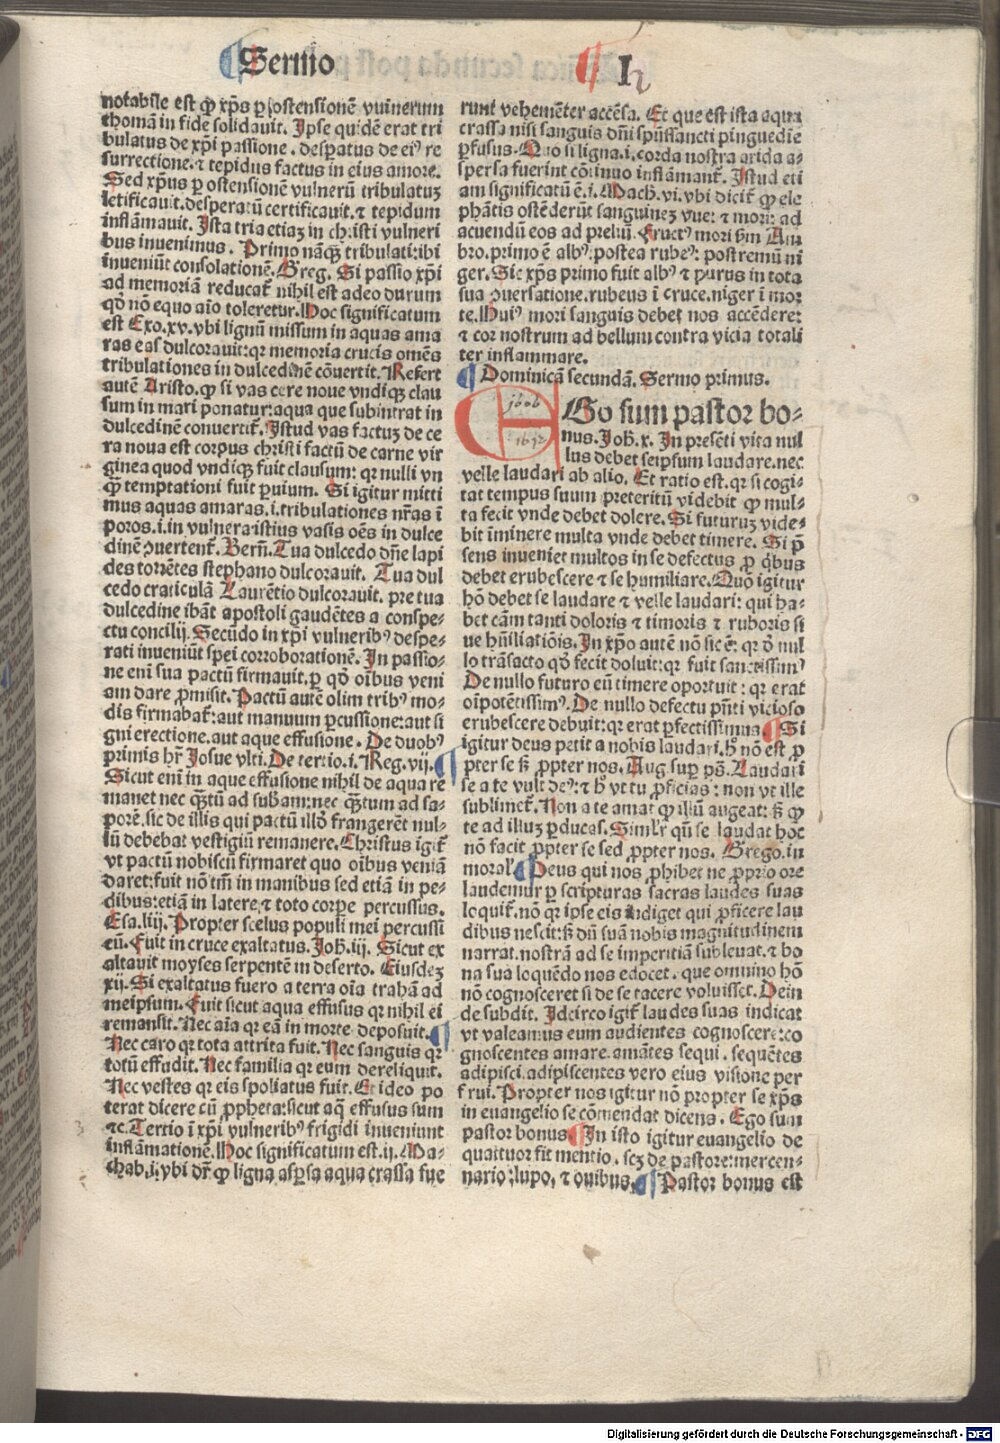 Sermo
I
notabile est ꝙ xp̄s per ostensionē vulnerum
thomā in fide solidauit. Ipse quidē erat tri
bulatus de xp̄i passione. desperatus de eiꝰ re
surrectione. ⁊ tepidus factus in eius amore.
Sed xp̄us ꝑ ostensionē vulnerū tribulatuꝫ
letificauit. desperatū certificauit. ⁊ tepidum
inflāmauit. Ista tria etiaꝫ in christi vulneri
bus inuenimus. Primo nāqꝫ tribulati: ibi
inueniūt consolationē. Greg. Si passio xp̄i
ad memoriā reducat̄ nihil est adeo durum
qd̓ nō equo aīo toleretur. Hoc significatum
est Exo. xv. vbi lignū missum in aquas ama
ras eas dulcorauit: qꝛ memoria crucis om̄es
tribulationes in dulcedinē cōuertit. Refert
autē Aristo. ꝙ si vas cere noue vndiqꝫ clau
sum in mari ponatur: aqua que subintrat in
dulcedinē conuertit̄. Istud vas factuꝫ de ce
ra noua est corpus christi factū de carne vir
ginea quod vndiqꝫ fuit clausum: qꝛ nulli vn
qꝫ temptationi fuit ꝑuium. Si igitur mitti
mus aquas amaras. i. tribulationes nr̄as ī
poros. i. in vulnera istius vasis oēs in dulce
dinē ꝯuertent̄. Bern̄. Tua dulcedo dn̄e lapi
des torrētes stephano dulcorauit. Tua dul
cedo craticulā Laurētio dulcorauit. pre tua
dulcedine ibāt apostoli gaudētes a conspe
ctu concilij. Secūdo in xp̄i vulneribꝰ despe
rati inueniūt spei corroborationē. In passio
ne enī sua pactū firmauit. ꝑ qd̓ oībus veni
am dare ꝓmisit. Pactū autē olim tribꝰ mo
dis firmabat̄: aut manuum ꝑcussione: aut si
gni erectione. aut aque effusione. De duobꝰ
primis hr̄ Josue vlti. De tertio. i. Reg. vij.
Sicut enī in aque effusione nihil de aqua re
manet nec qꝫtū ad subam: nec qꝫtum ad sa
porē. sic de illis qui pactū illd̓ frangerēt nul
lū debebat vestigiū remanere. Christus igit̄
vt pactū nobiscū firmaret quo oībus veniā
daret: fuit nō tm̄ in manibus sed etiā in pe
dibus: etiā in latere. ⁊ toto corpe percussus.
Esa. liij. Propter scelus populi mei percussi
eū. Fuit in cruce exaltatus. Joh̄. iij. Sicut ex
altauit moyses serpentē in deserto. Eiusdeꝫ
xij. Si exaltatus fuero a terra oīa trahā ad
meipsum. Fuit sicut aqua effusus qꝛ nihil ei
remansit. Nec aīa qꝛ eā in morte deposuit.
Nec caro qꝛ tota attrita fuit. Nec sanguis qꝛ
totū effudit. Nec familia qꝛ eum dereliquit.
Nec vestes qꝛ eis spoliatus fuit. Et ideo po
terat dicere cū ꝓpheta: sicut aq̄ effusus sum
⁊c. Tertio ī xp̄i vulneribꝰ frigidi inueniunt
inflamationē. Hoc significatum est. ij. Ma
chab. i. vbi dr̄ ꝙ ligna asꝑsa aqua crassa fue
runt vehemēter accēsa. Et que est ista aqua
crassa nisi sanguis dn̄i spūssancti pinguedīe
ꝑfusus. Quo si ligna. i. corda nostra arida a
spersa fuerint cōtinuo inflāmant̄. Istud eti
am significatū ē. i. Mach. vi. vbi dicit̄ ꝙ ele
phātis ostēderūt sanguineꝫ vue: ⁊ mori: ad
acuendū eos ad preliū. Fructꝰ mori bm̄ Am
bro. primo ē albꝰ: postea rubeꝰ: postremū ni
ger. Sic xp̄s primo fuit albꝰ ⁊ purus in tota
sua ꝯuersatione. rubeus ī cruce. niger ī mor
te. Huiꝰ mori sanguis debet nos accēdere:
⁊ cor nostrum ad bellum contra vicia totali
ter inflammare.
Dominica secunda. Sermo primus.
Ego sum pastor bo-
jhoh
1692
nus. Joh̄. x. In presēti vita nul
lus debet seipsum laudare. nec
velle laudari ab alio. Et ratio est. qꝛ si cogi-
tat tempus suum preteritū videbit ꝙ mul-
ta fecit vnde debet dolere. Si futuruꝫ vide-
bit īminere multa vnde debet timere. Si p̄
sens inueniet multos in se defectus ꝓ qb̓us
debet erubescere ⁊ se humiliare. Quō igitur
hō debet se laudare ⁊ velle laudari: qui ha-
bet cām tanti doloris ⁊ timoris ⁊ ruboris si
ue hūiliatiōis. In xp̄o autē nō sic ē: qꝛ d̓ nul
lo trāsacto qd̓ fecit doluit: qꝛ fuit sanctissimꝰ
De nullo futuro eū timere oportuit: qꝛ erat
oīpotētissimꝰ. De nullo defectu pn̄ti vicioso
erubescere debuit: qꝛ erat ꝑfectissimus. Si
igitur deus petit a nobis laudari. h̓ nō est ꝓ
pter se sꝫ ꝓpter nos. Aug. sup̱ ps̄. Laudari
se a te vult deꝰ: ⁊ h̓ vt tu ꝓficias: non vt ille
sublimet̄. Non a te amat ꝙ illū augeat: sꝫ ꝙ
te ad illuꝫ ꝑducas. Simlr̄ qn̄ se laudat hoc
nō facit ꝓpter se sed ꝓpter nos. Grego. in
moral̓. Deus qui nos ꝓhibet ne ꝓprio ore
laudemur ꝑ scripturas sacras laudes suas
loquit̄. nō qꝛ ipse eis indiget qui ꝓficere lau
dibus nescit: sꝫ dū suā nobis magnitudinem
narrat. nostrā ad se imperitiā subleuat. ⁊ bo
na sua loquēdo nos edocet. que omnino hō
nō cognosceret si de se tacere voluisset. Dein
de subdit. Idcirco igit̄ laudes suas indicat
vt valeamus eum audientes cognoscere: co
gnoscentes amare. amātes sequi. sequētes
adipisci. adipiscentes vero eius visione per
frui. Propter nos igitur nō propter se xp̄s
in euangelio se cōmendat dicens. Ego sum
pastor bonus. In isto igitur euangelio de
quattuor fit mentio. scꝫ de pastore: mercen-
nario: lupo, ⁊ ouibus. Pastor bonus est
Digitalisierung gefördert durch die Deutsche Forschungsgemeinschaft - DFG